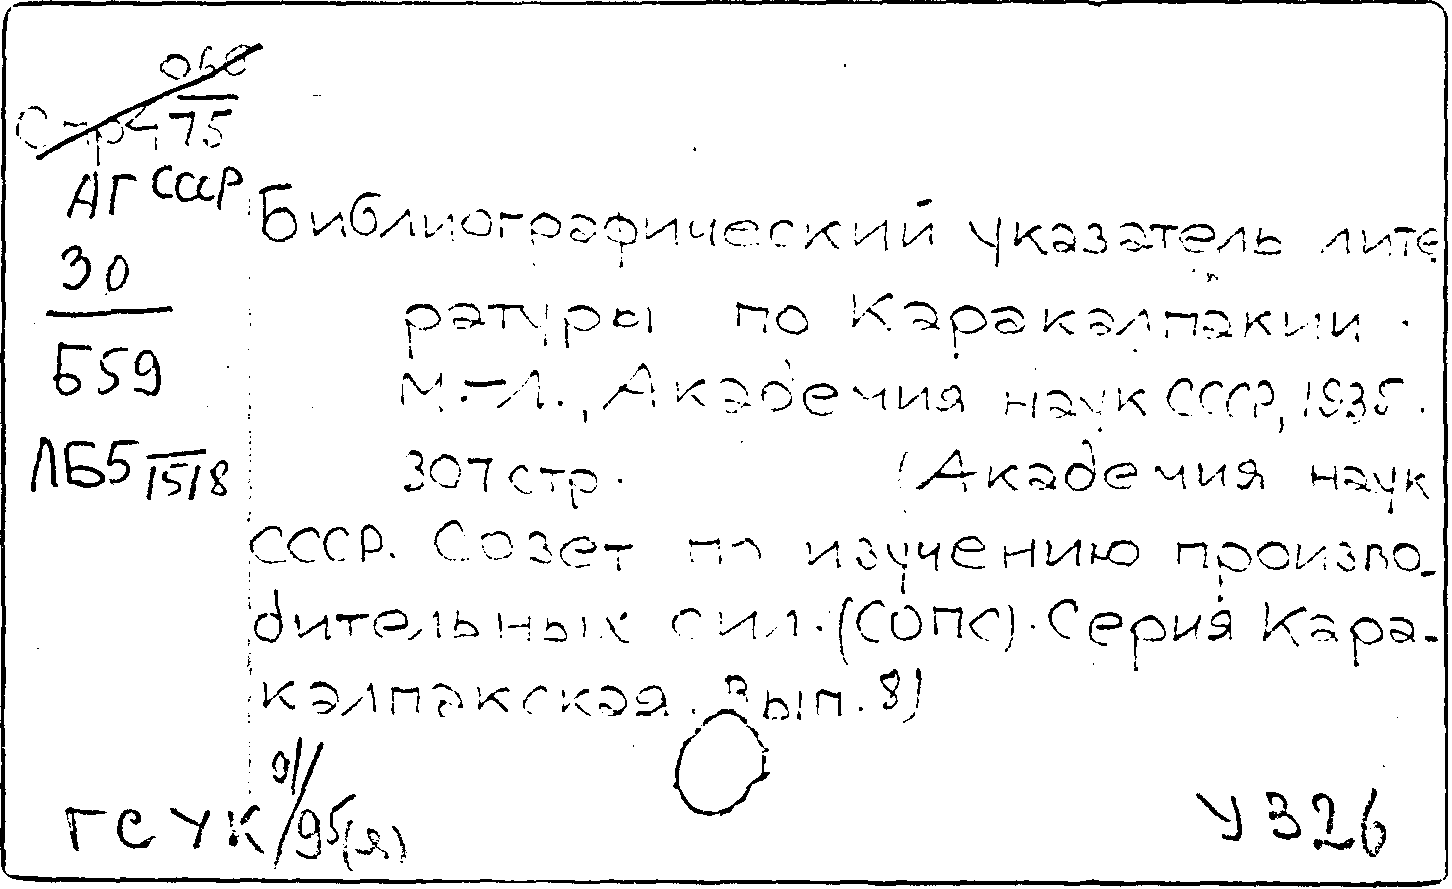 АГ СССР
30
Б59
ЛБ5 1518
Библиографический указатель лите
ратуры по Каракалпакии.
М.-Л., Академия наук СССР, 1935.
307 стр. (Академия наук
СССР. Совет по изучению произво-
дительных сил. (СОПС). Серия Кара-
калпакская. Вып. 8)
ГСУК 95(я)
У326